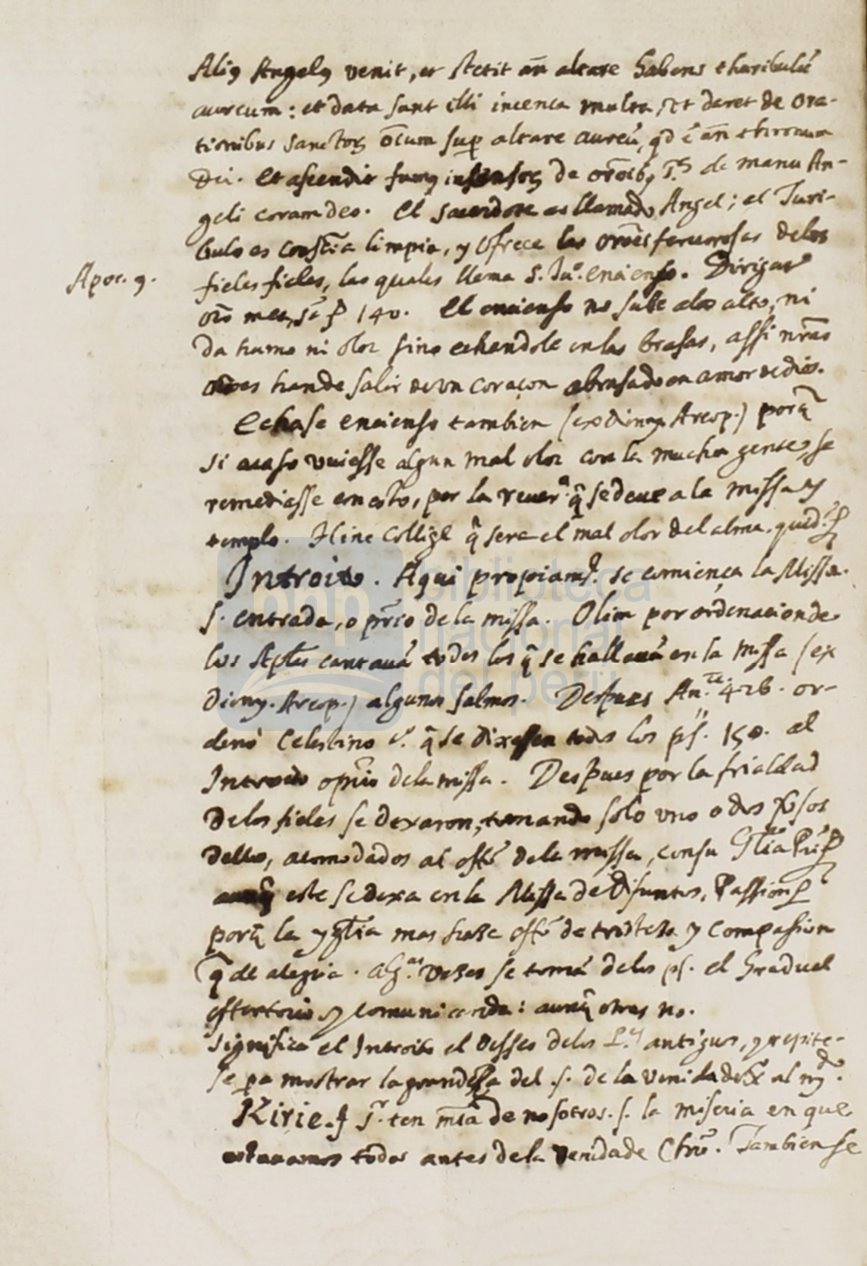 Aliꝰ Angelꝰ venit, et stetit añ altare habens tharibulũ
aureum: et data sunt illi incenca multa, vt daret de ora-
tionibus sanctoꝝ oĩum sup altare aureũ, qd ẽ añ thronum
Dei. Et ascendit fumꝰ insensoꝝ de orõibꝰ Sˢ de manu An-
geli coram deo. El sacerdote es llamado Angel; el Turi-
bulo es consçia limpia, y ofrece las orões feruorosas delos
Apoc. 9.
fieles fieles, las quales llama S. Juº. encienso. Dirigatʳ
orõ mea, sẽ ꝑ 140. El encienso no sube alo alto, ni
da humo ni olor sino echandole en las brasas, assi nr̃as
orões hande salir de vn coraçon abrasado en amor de dios.
Echase encienso tambien (ex Diony. Areop.) porq̃
si acaso vuiesse algun mal olor con la mucha gente, se
remediasse con esto, por la reuerª. q̃ se deue a la missa y
templo. Hinc collige q̃ sera el mal olor del alma.
Introito. Aqui propiamᵉ. se comiença la Missa.
s. entrada, o prĩo de la missa. Olim por ordenacion de
los Aptẽs cantauã todos los q̃ se hallauã en la missa (ex
Diony. Areop.) algunos salmos. Despues 426. or-
denó Celestino q̃ se dixessen todos los ps. 150. al
Introito o prĩo de la missa. Despues por la frialdad
de los fieles se dexaron, tomando solo vno o dos
dellos, acomodados al offº de la missa, con su Glĩa Prĩ
aunq̃ este se dexa en la Missa de Difuntos, Passion
porq̃ la yglĩa mas haze offº de tristeza y compassion
q̃ de alegria. algᵃˢ vezes se tomã delos ps. el Gradual
offertorio y comunicanda: aunq̃ otras no.
Significa el Introito el desseo delos Pˢ antiguos, y repite-
se pa mostrar la grandeza del .s. de la venida de X al mᵈº.
Kirie. Sʳ ten mĩa de nosotros .s. la miseria en que
estauamos todos antes de la venida de Chrõ. Tambien se